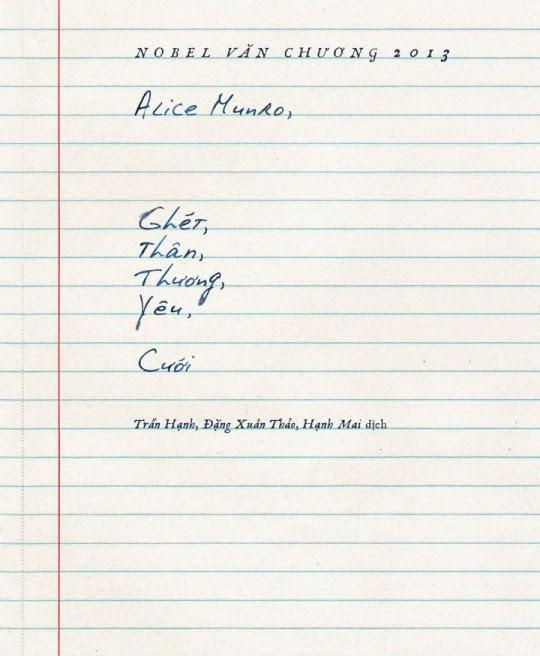 NOBEL VĂN CHƯƠNG 2013
Alice Munro,
Ghét,
Thân,
Thương,
Yêu,
Cưới
Trần Hạnh, Đặng Xuân Thảo, Hạnh Mai dịch